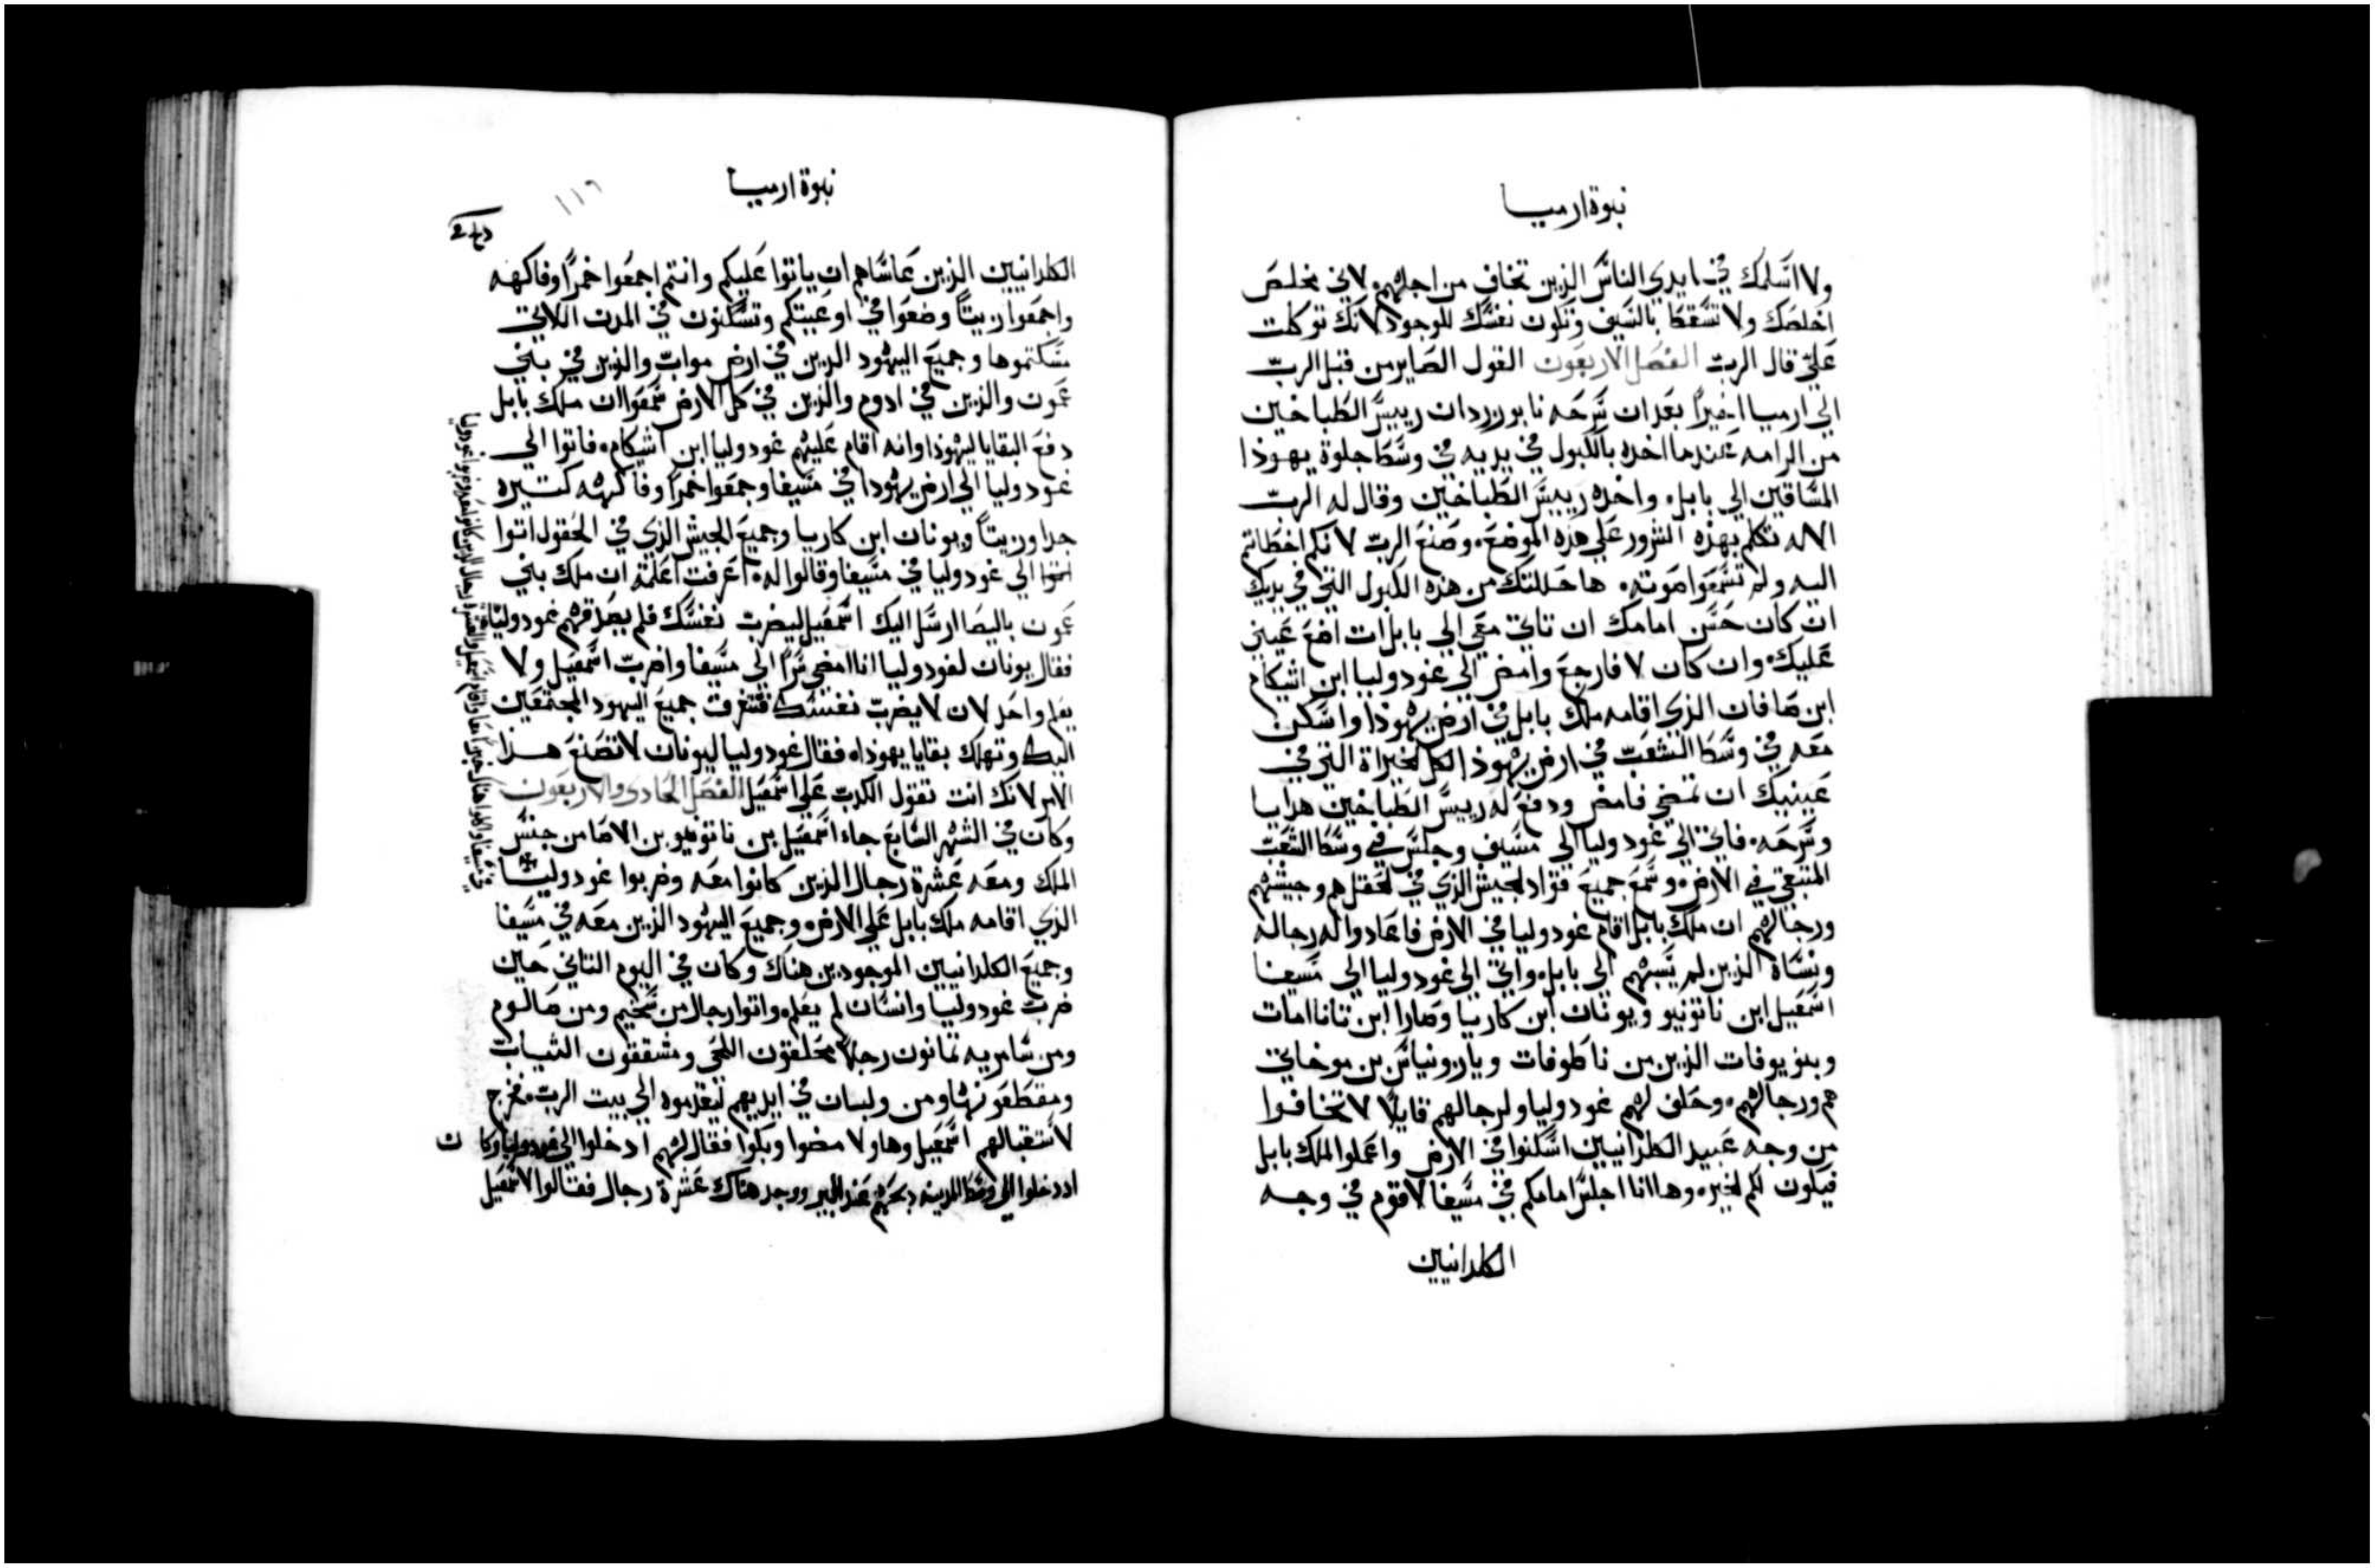 نبوة ارميا
ولا اسلمك في ايدي الناس الذين تخاف من اجلهم لاني مخلص
اخلصك ولا تسقط بالسيف وتكون نفسك للوجود لانك توكلت
علي قال الرب الفصل الاربعون القول الصاير من قبل الرب
الي ارميا اخيرا بعد ان سرحه نابوزردان رييس الطباخين
من الرامه عندما اخده بالكبول في يديه في وسط جلوة يهوذا
المساقين الي بابل واخده رييس الطباخين وقال له الرب
الاله تكلم بهذه الشرور علي هذه الموضع وصنع الرب لانكم اخطاتم
اليه ولم تسمعوا صوته ها حللتك من هذه الكبول التي في يديك
ان كان حسن امامك ان تاتي معي الي بابل ات اضع عيني
عليك وان كان لا فارجع وامض الي غودوليا ابن اشيكام
ابن صافان الذي اقامه ملك بابل في ارض يهوذا واسكن
معه في وسط الشعب في ارض يهوذا لكل الخيراة التي في
عينيك ان تمضي فامض ودفع له رييس الطباخين هدايا
وسرحه فاتي الي غودوليا الي مسيف وجلس في وسط الشعب
المتبقي في الارض وسمع جميع قواد الجيش الذي في الحقل هم وجيشهم
ورجالهم ان ملك بابل اقام غودوليا في الارض فاعادوا له رجاله
ونساه الذين لم يسبهم الي بابل واتي الي غودوليا الي مسيفا
اسمعيل ابن ناتونيو ويونان ابن كاريا وصارا ابن تاناامات
وبنو يوفات الذين من ناطوفات ويازونياس بن موخاتي
هم ورجالهم وحلف لهم غودوليا ولرجالهم قايلا لا تخافوا
من وجه عبيد الكلدانيين اسكنوا في الارض واعملوا الملك بابل
فيكون لكم الخير وها انا اجلس امامكم في مسيفا لاقوم في وجه
الكلدانيين
نبوة ارميا
١١٦
الكلدانيين الذين عاساهم ان ياتوا عليكم وانتم اجمعوا خمرا وفاكهه
واجمعوا زيتا وضعوا في اوعيتكم وتسكنون في المدن اللاتي
مسكتموها وجميع اليهود الذين في ارض مواب والذين في بني
عمون والذين في ادوم والذين في كل الارض سمعوا ان ملك بابل
دفع البقايا ليهوذا وانه اقام عليهم غودوليا ابن اشيكام فاتوا الي
غودوليا الي ارض يهوذا في مسيفا وجمعوا خمرا وفاكهه كتيره
جدا وزيتا ويونان ابن كاريا وجميع الجيش الذي في الحقول اتوا
الي غودوليا في مسيفا وقالوا له اعرفت اعلمة ان ملك بني
عمون باليصا ارسل اليك اسمعيل ليضرب نفسك فلم يصدقهم غودوليا
فقال يونان لغودوليا انا امضي سرا الي مسيفا واضرب اسمعيل ولا
يعلم واحد لان لا يضرب نفسك فتتفرق جميع اليهود المجتمعين
اليك وتهلك بقايا يهوداه فقال غودوليا ليونان لا تصنع هذا
الامر لانك انت تقول الكدب علي اسمعيل الفصل الحادي والاربعون
وكان في الشهر السابع جاء اسمعيل بن ناتونيو بن الاصا من جنس
الملك ومعه عشرة رجال الذين كانوا معه وضربوا غودوليا
الذي اقامه ملك بابل علي الارض وجميع اليهود الذين معه في مسيفا
وجميع الكلدانيين الموجودين هناك وكان في اليوم التاني حين
ضرب غودوليا وانسان لم يعلم واتوا رجال من سخيم ومن صالوم
ومن سامريه تمانون رجلا محلقون اللحي ومشققون التياب
ومقطعون ومن ولبان في ايديهم ليقدموه الي بيت الرب فخرج
لاستقبالهم اسمعيل وهاولا مضوا وبكوا فقال لهم ادخلوا الي غودوليا وكان
اد دخلوا الي وسط المدينه دبحهم عند البير ووجد هناك عشرة رجال فقالوا لاسمعيل